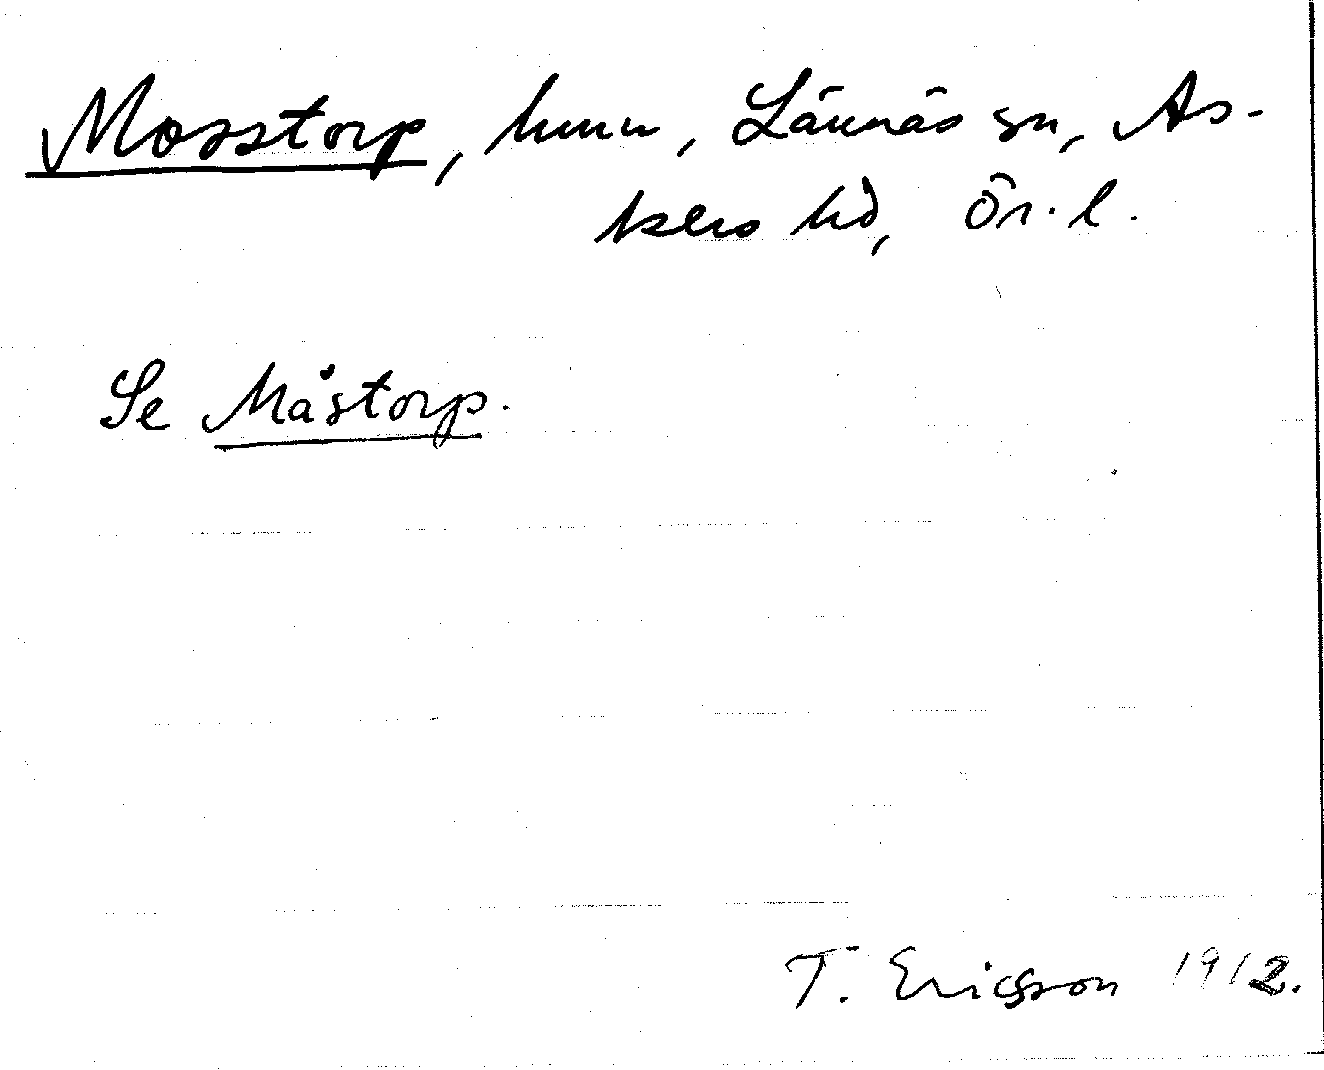 Mosstorp, hmn, Lännäs sn, As-
kers hd, Ör. l.
Se Måstorp.
T. Ericsson 1912.